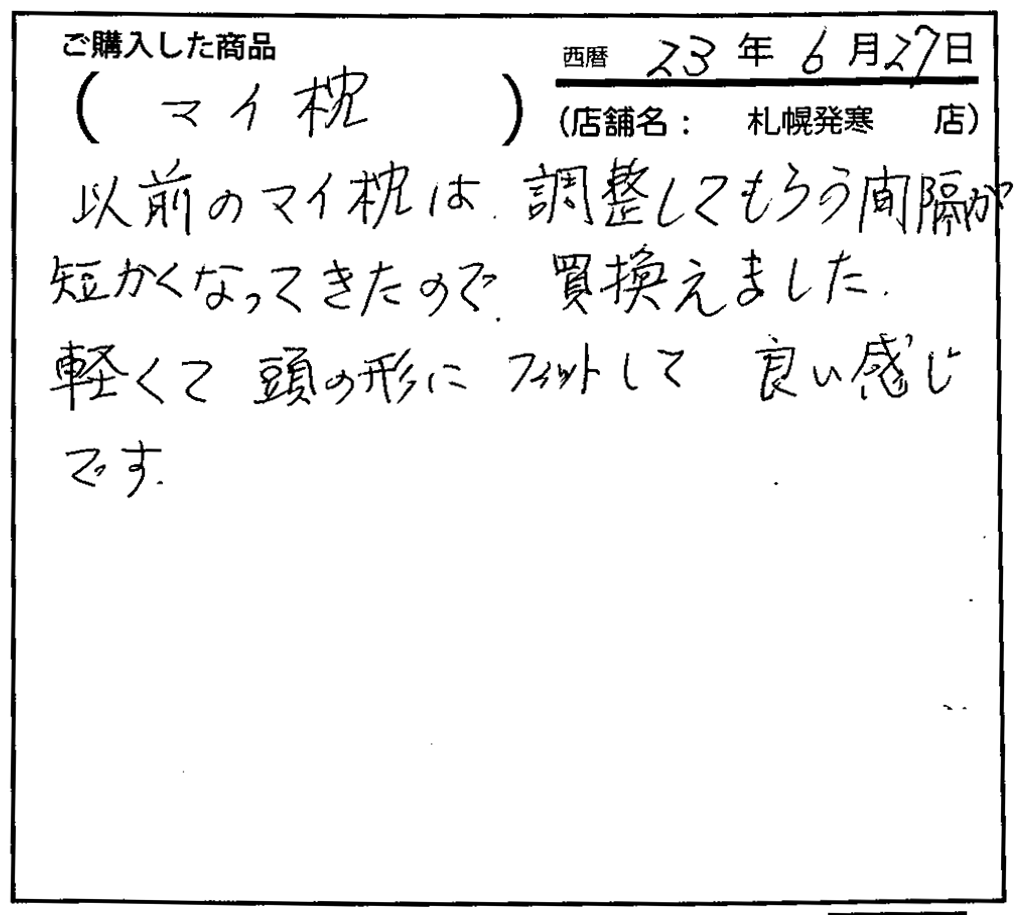 ご購入した商品
西暦 23年 6月27日
( マイ枕 )
(店舗名: 札幌発寒 店)
以前のマイ枕は、調整してもらう間隔が
短かくなってきたので、買換えました.
軽くて 頭の形に フィットして 良い感じ
です.